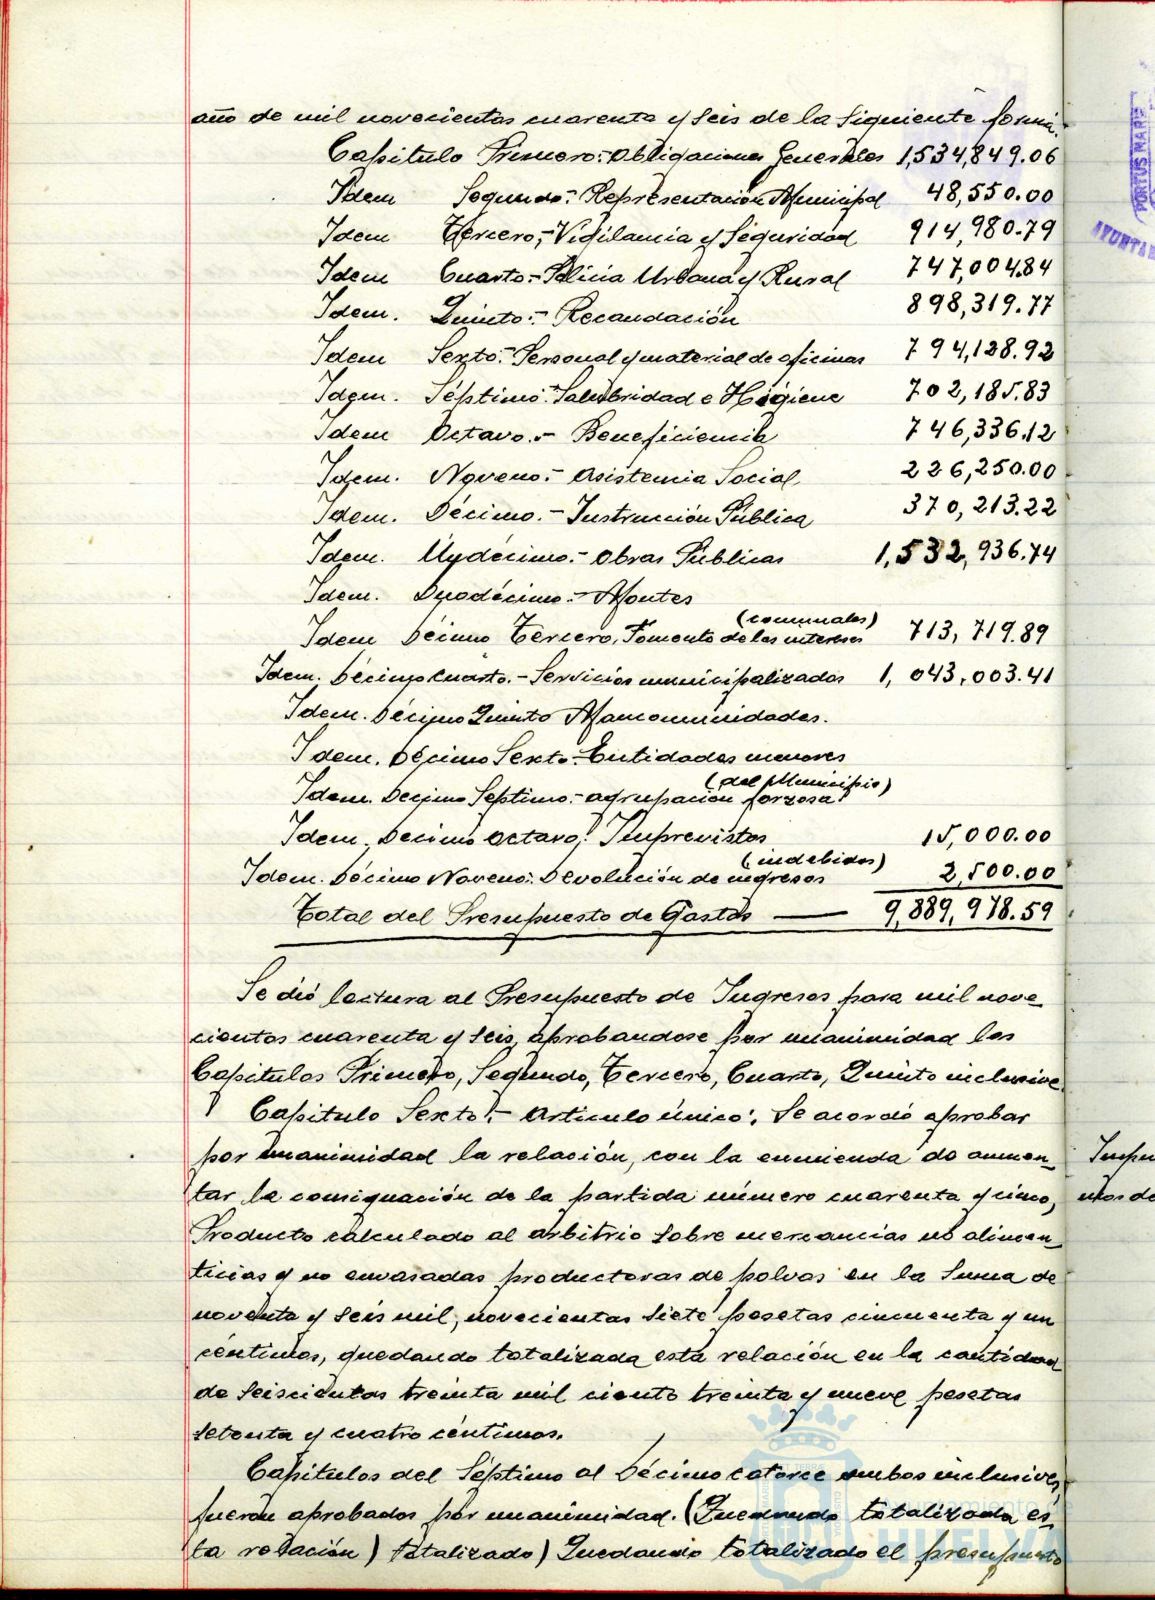 año de mil novecientos cuarenta y seis de la siguiente forma.
Capitulo Primero:- Obligaciones Generales 1,534,849.06
Idem Segundo:- Representación Municipal 48,550.00
Idem Tercero,- Vigilancia y Seguridad 914,980.79
Idem Cuarto.- Policia Urbana y Rural 747,004.84
Idem. Quinto:- Recaudación 898,319.77
Idem Sexto:- Personal y material de oficinas 794,128.92
Idem. Séptimo:- Salubridad e Higiene 702,185.83
Idem Octavo.- Beneficiencia 746,336.12
Idem. Noveno:- Asistencia Social 226,250.00
Idem. Décimo.- Instrucción Pública 370,213.22
Idem. Undécimo.- Obras Públicas 1,532,936.74
Idem. Duodécimo.- Montes
(comunales)
Idem Décimo Tercero, Fomento de los intereses 713,719.89
Idem. Décimo Cuarto.- Servicios municipalizados 1,043,003.41
Idem. Décimo Quinto Mancomunidades.
Idem. Décimo Sexto.- Entidades menores
(del Municipio)
Idem. Decimo Septimo.- agrupación forzosa
Idem. Decimo octavo: Imprevistos 15,000.00
(indebidos)
Idem. Décimo Noveno: Devolución de ingresos 2,500.00
Total del Presupuesto de Gastos — 9,889,978.59
Se dió lectura al Presupuesto de Ingresos para mil nove-
cientos cuarenta y seis, aprobandose por unanimidad los
Capitulos Primero, Segundo, Tercero, Cuarto, Quinto inclusive
Capitulo Sexto.- Articulo único: Se acordó aprobar
por unanimidad la relación, con la enmienda de aumen-
tar la consignación de la partida número cuarenta y cinco,
Producto calculado al arbitrio sobre mercancias no alimen-
ticias y no envasadas productoras de polvos en la suma de
noventa y seis mil, novecientas siete pesetas cincuenta y un
céntimos, quedando totalizada esta relación en la cantidad
de seiscientas treinta mil ciento treinta y nueve pesetas
setenta y cuatro céntimos.
Capitulos del Séptimo al Décimo catorce ambos inclusives,
fueron aprobados por unanimidad. (Quedando totalizada es-
ta relación) totalizado) Quedando totalizado el presupuesto
PORTUS MARIS
Ayuntamiento de
HUELVA